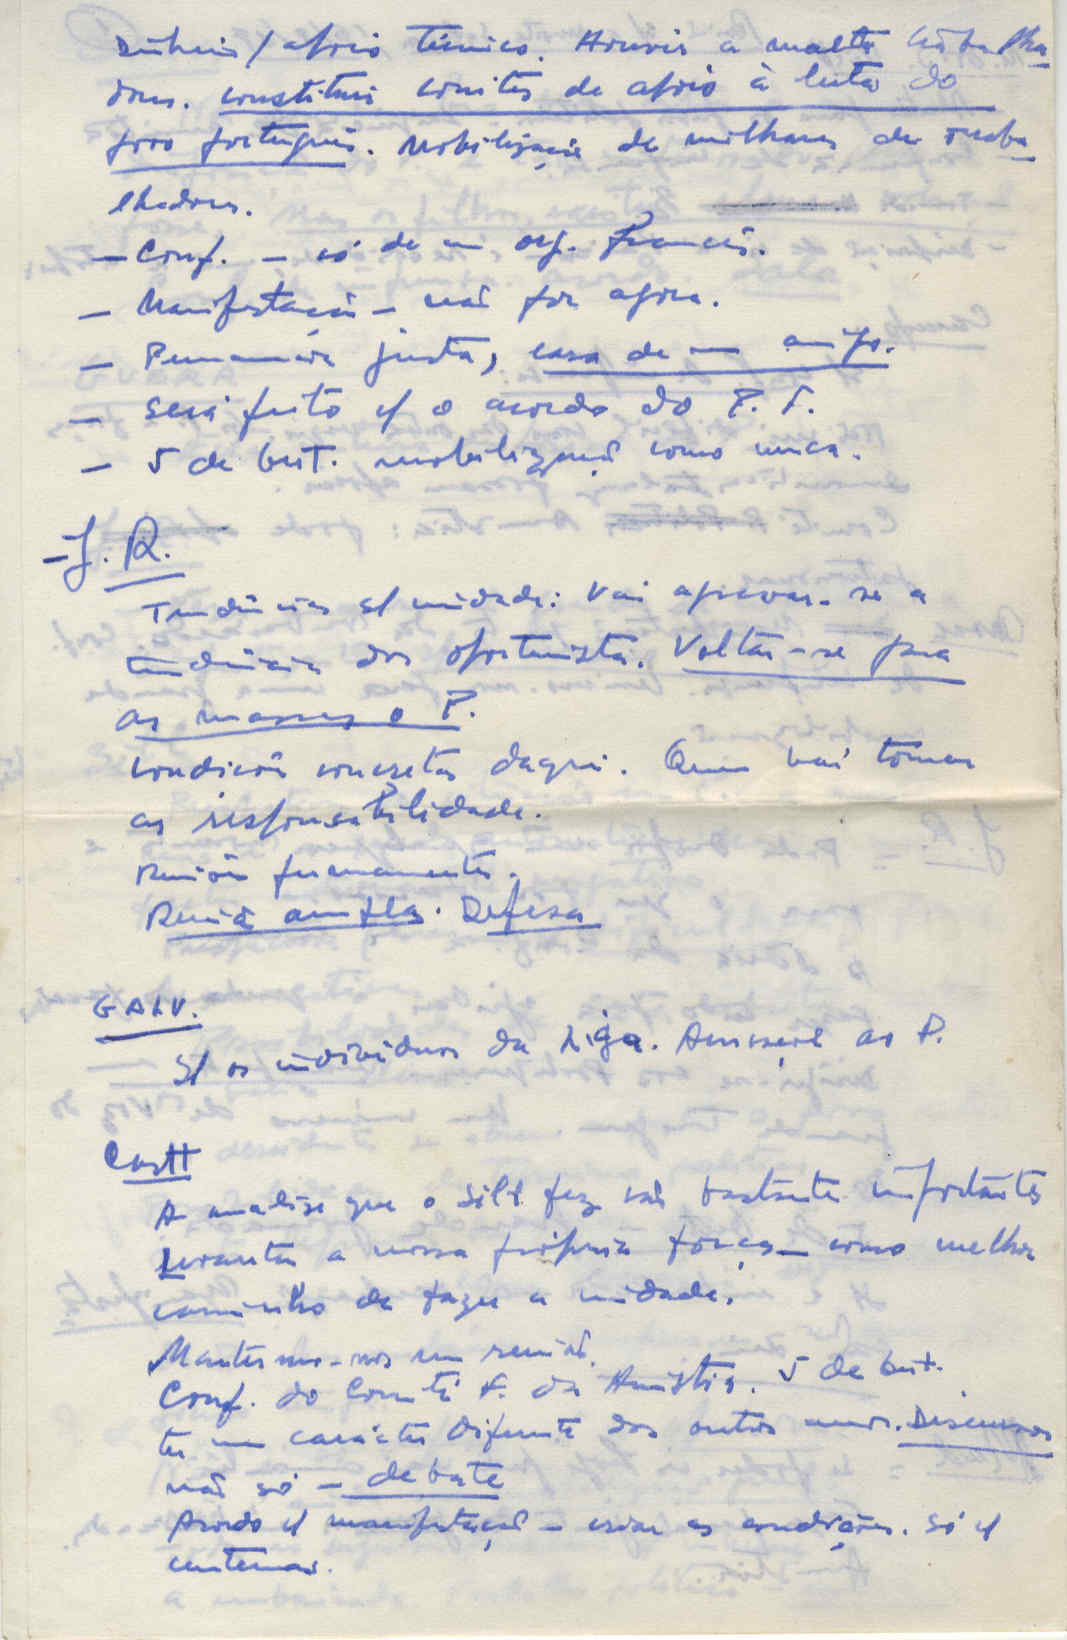 Dinheiro/apoio técnico. Houvir a malta trabalha
dora. constituir comités de apoio à luta do
povo português. Mobilização de milhares de traba
lhadores.
— Conf. — só de um org. francês.
— Manifestação — não por agora.
— Permanência justa, casa de um amigo.
— Será feito c/ o acordo do P. F.
— 5 de Out. mobilização como nunca.
— J. R.
Tendências s/ unidade: Vai agravar-se a
tendência dos oportunistas. Voltar-se para
as massas o P.
condições concretas daqui. Quem vai tomar
as responsabilidade.
Reunião permanente.
Reunião ampla. Defesa
GALV.
S/ os indivíduos da Liga. ao P.
Castt
A análise que o Silv. fez são bastante importantes
Levantar a nossa própria força — como melhor
caminho de fazer a unidade.
Mantermo-nos em reunião.
Conf. do Comité F. da Amnistia. 5 de Out.
ter um carácter diferente dos outros anos. Discursos
não só — debate
Acordo c/ manifestação — criar as condições. Só c/
centenas.